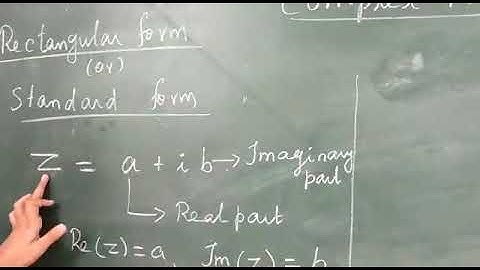 Complex
Rectangular form
(or)
Standard form
Z = a + i b → Imaginary
part
Real part
Re(z) = a, Im(z) = b